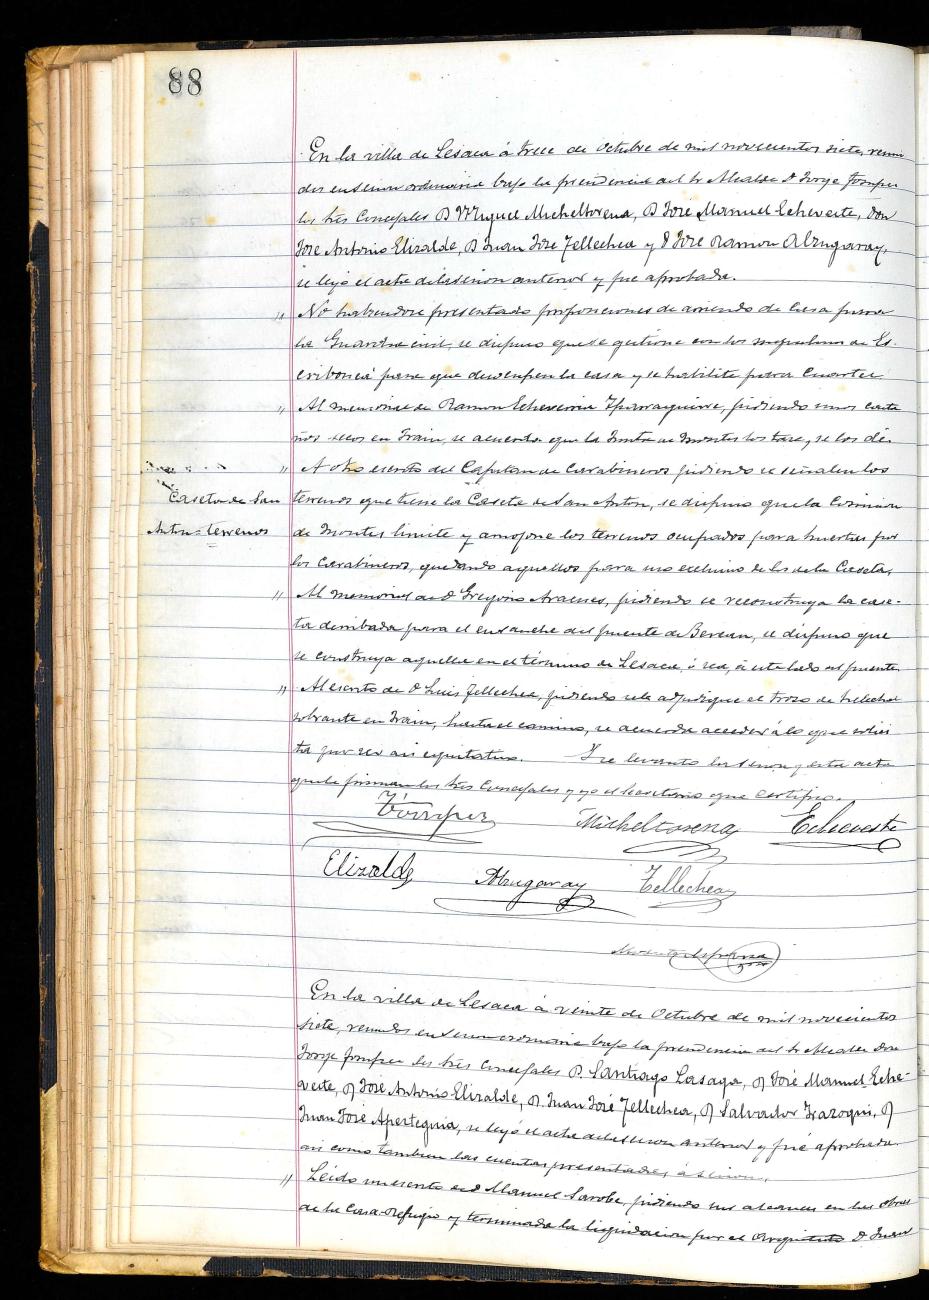 88
En la villa de Lesaca á trece de Octubre de mil novecientos siete, reuni
dos en sesion ordinaria bajo la presidencia del Sr Alcalde D Jorge
los Sres Concejales D Miguel Micheltorena, D José Manuel Echeveste, Don
José Antonio Elizalde, D Juan José Tellechea y D José Ramon Almgaray,
se leyó el acta de la sesion anterior y fue aprobada.
" No habiendose presentado proposiciones de arriendo de casa para
la Guardia civil, se dispuso que se gestione con los inquilinos de Es-
cribenea para que desocupen la casa y se habilite para Cuartel.
" Al memorial de Ramon Echeverria Yparraguirre, pidiendo unos casta
ños secos en Frain, se acuerda que la Junta de Montes los tase, se los dé.
" A otro escrito del Capitan de Carabineros pidiendo se señalen los
Caseta de San
terrenos que tiene la Caseta de San Anton, se dispuso que la Comision
Anton = terrenos
de Montes limite y amojone los terrenos ocupados para huertas por
los Carabineros, quedando aquellos para uso exclusivo de los de la Caseta.
" Al memorial de D Gregorio pidiendo se reconstruya la case-
ta derribada para el ensanche del puente de Berean, se dispuso que
se construya aquella en el término de Lesaca, ó sea, á este lado del puente
" Al escrito de D Luis Tellechea, pidiendo se le adjudique el trozo de helechal
sobrante en Frain, hasta el camino, se acuerda acceder á lo que solici
ta por ser asi equitativo. Y se levantó la sesion y esta acta
que la firman los Sres Concejales y yo el Secretario que certifico.
Micheltorena Echeveste
Elizalde Almgaray Tellechea
En la villa de Lesaca á veinte de Octubre de mil novecientos
siete, reunidos en sesion ordinaria bajo la presidencia del Sr Alcalde Don
Jorge los Sres Concejales D. Santiago Lasaga, D José Manuel Eche-
veste, D José Antonio Elizalde, D. Juan José Tellechea, D Salvador Irazoqui, D
Juan José Aperteguia, se leyó el acta de la sesion anterior y fué aprobada.
asi como tambien las cuentas presentadas á sesion.
" Leido un escrito de D Manuel Sarobe, pidiendo sus alcances en las obras
de la Casa-Refugio y terminada la liquidacion por el Arquitecto D Juan